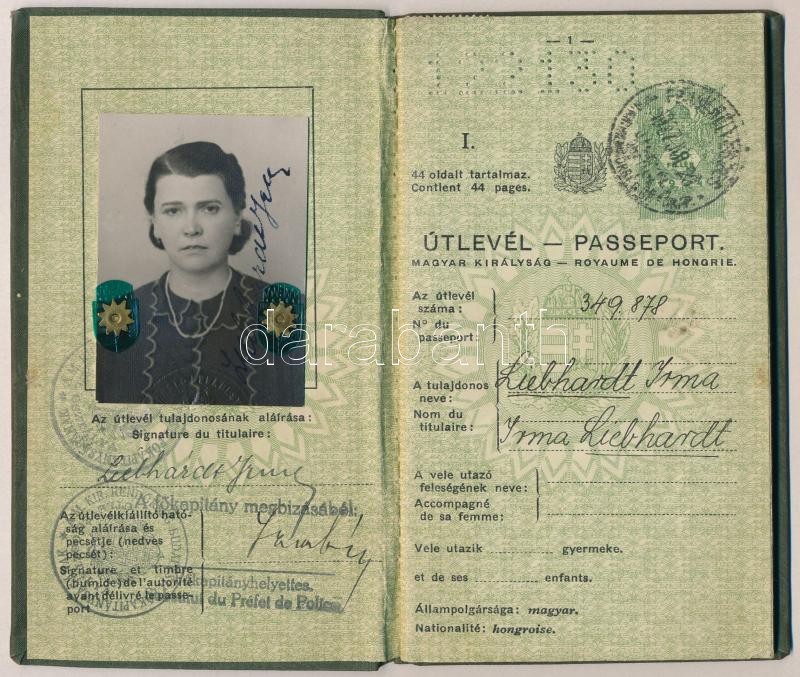 Az útlevél tulajdonosának aláírása:
Signature du titulaire:
Liebhardt Irma
A főkapitány megbizásából:
Az útlevélkiállító ható-
ság aláírása és
pecsétje (nedves
pecsét):
Signature et timbre
(humide) de l'autorité
ayant délivré le passe-
port
főkapitányhelyettes.
du Préfet de Police.
— 1 —
I.
44 oldalt tartalmaz.
Contient 44 pages.
ÚTLEVÉL — PASSEPORT.
MAGYAR KIRÁLYSÁG — ROYAUME DE HONGRIE.
Az útlevél
száma:
349.878
Nº du
passeport:
darabanth
A tulajdonos
neve:
Liebhardt Irma
Nom du
titulaire:
Irma Liebhardt
A vele utazó
feleségének neve:
Accompagné
de sa femme:
Vele utazik gyermeke.
et de ses enfants.
Állampolgársága: magyar.
Nationalité: hongroise.